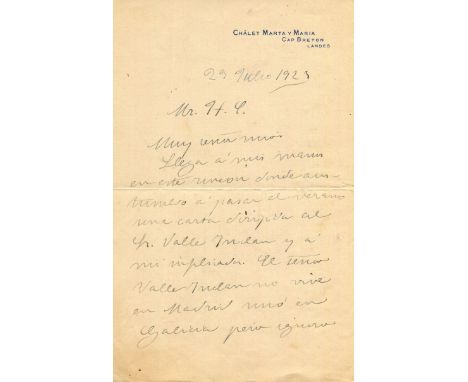 CHÂLET MARTA Y MARIA
CAP BRETON
LANDES
29 Julio 1923
Mr. H. C.
Muy señor mio
Llega á mis manos
en este rincon donde acos-
tumbro á pasar el verano
una carta dirigida al
Sr. Valle Inclan y á
mi implicada. El señor
Valle Inclan no vive
en Madrid sinó en
Galicia pero ignoro